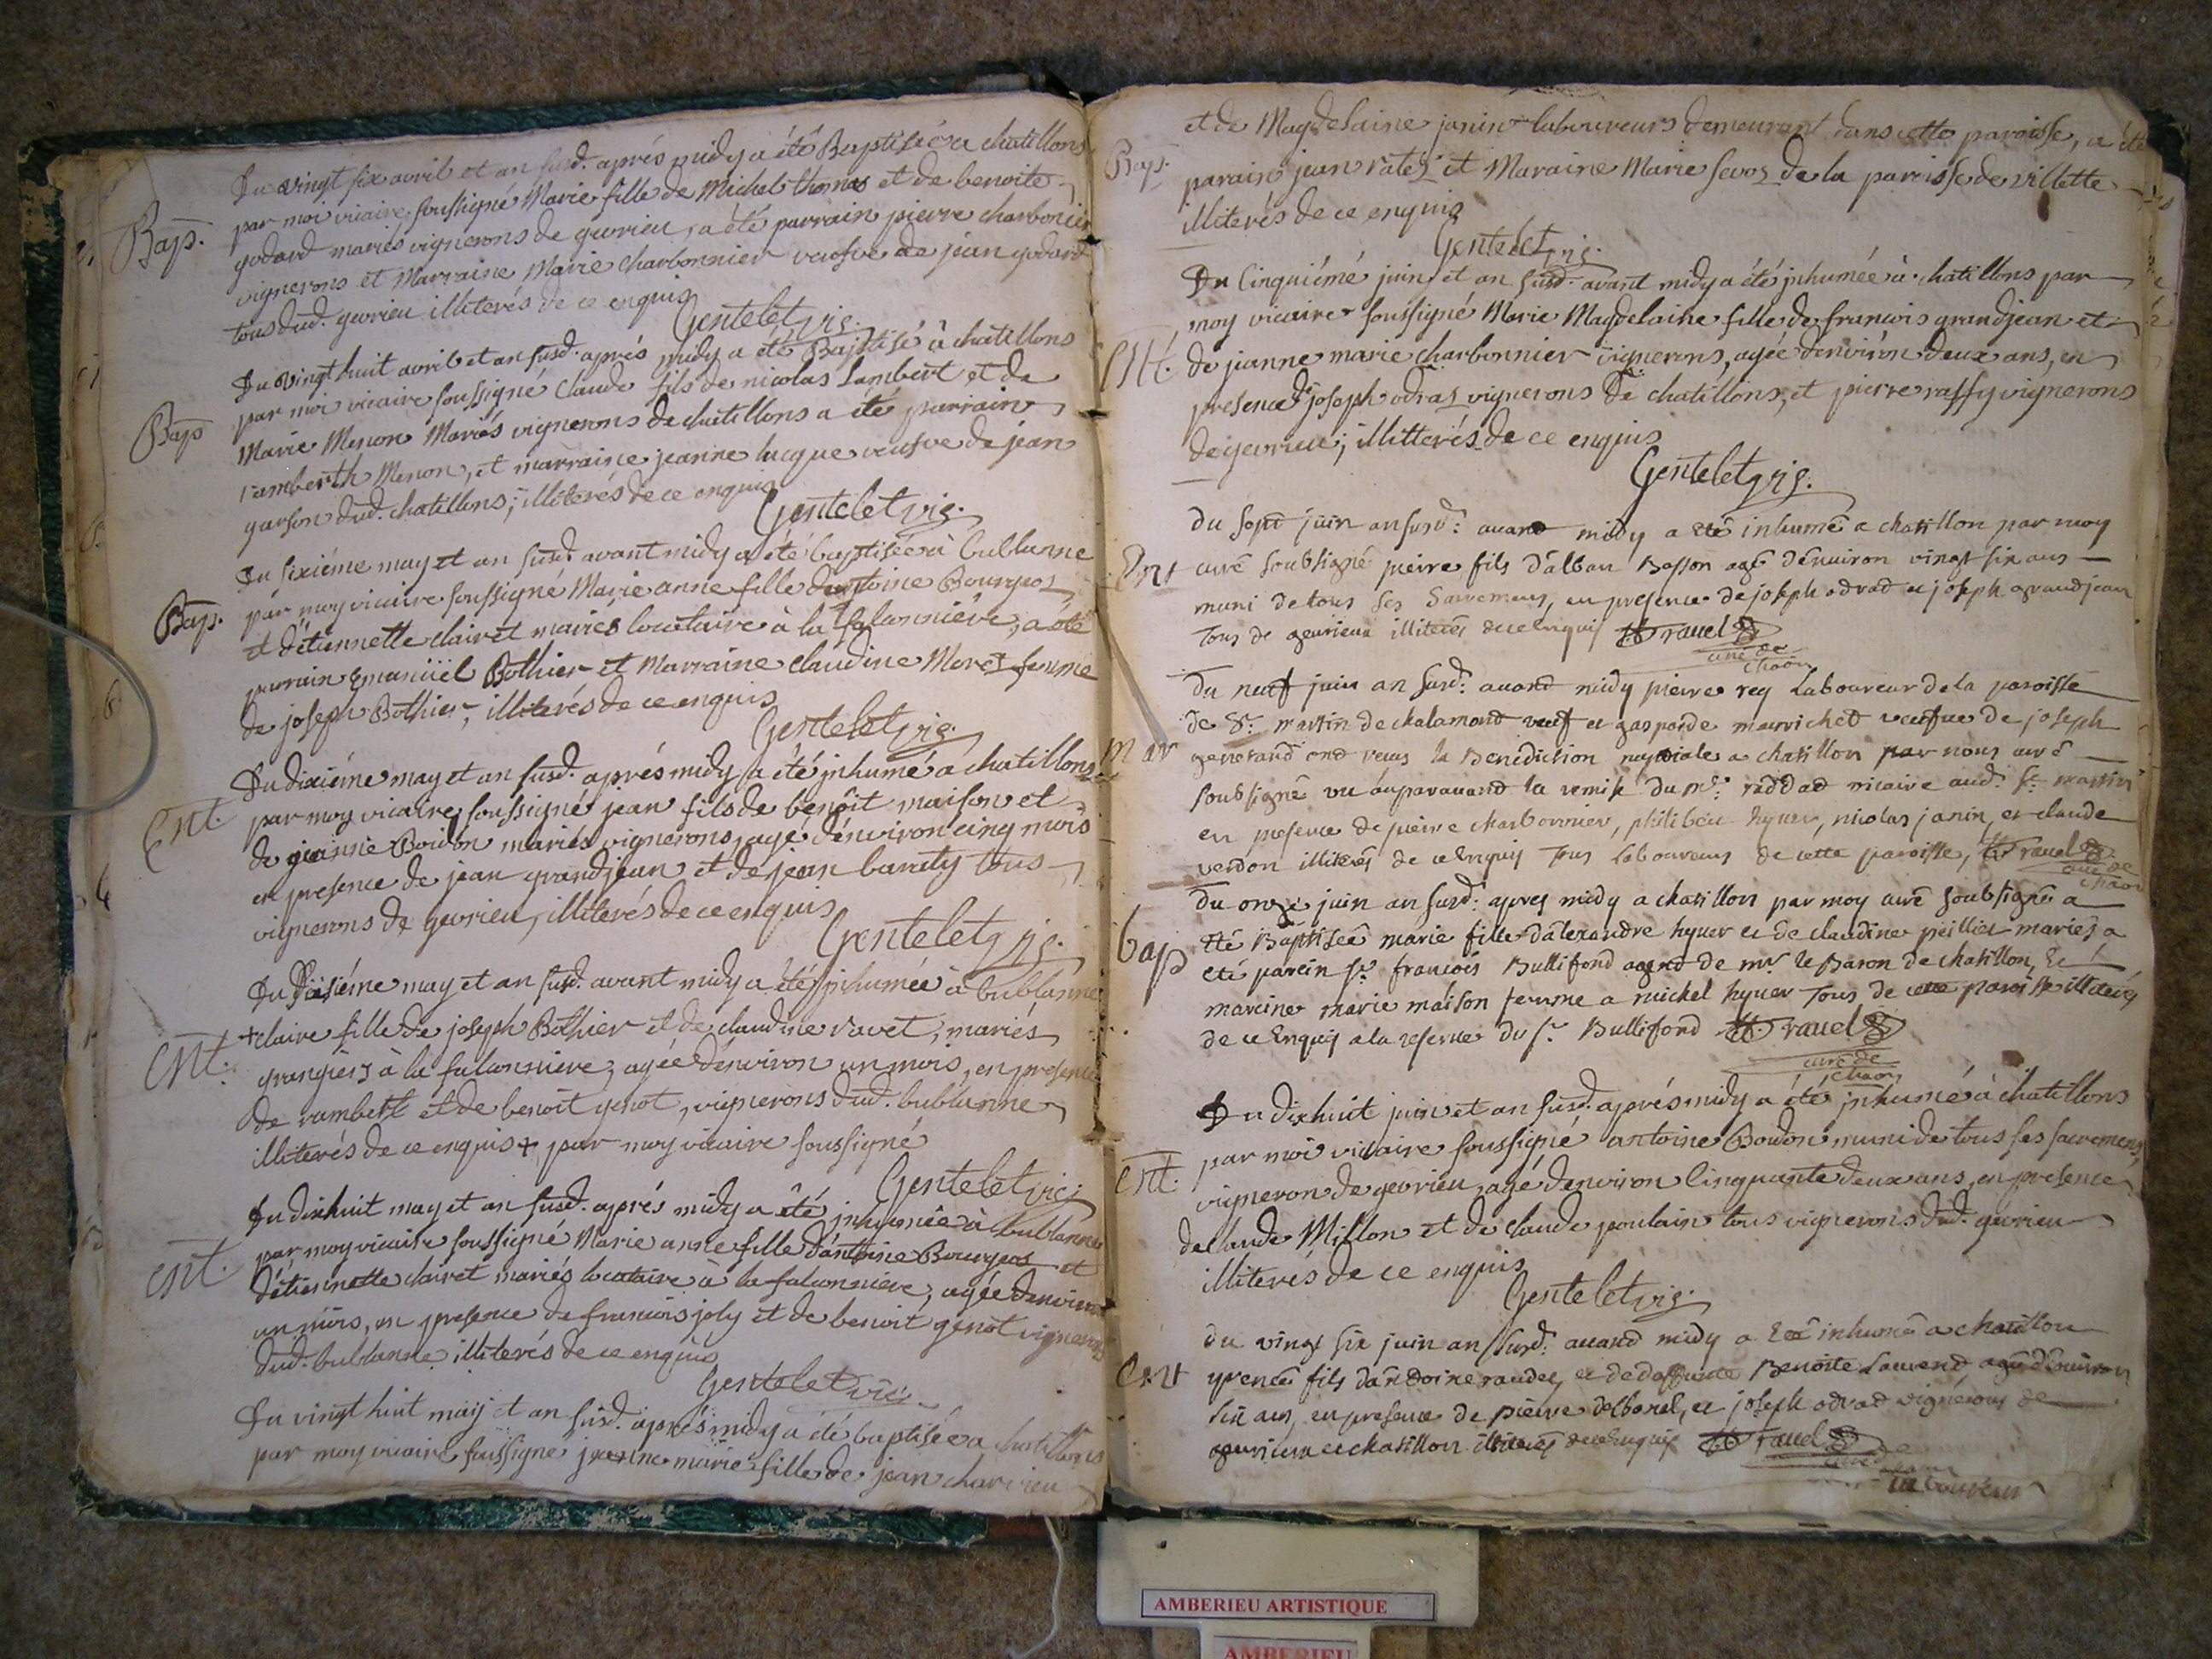 Du vingt six avril et an susd. aprés midy a été Baptisée a chatillons
Bap. par moi vicaire soussigné Marie fille de Michel thomas et de benoite
godard mariés vignerons de gevrieu, a été parrain pierre charbonier
vignerons et Marraine Marie Charbonnier veufve de jean godard
tous dud. gevrieu illiterés de ce enquis
Gentelet vic.
Du vingt huit avril et an susd. aprés midy a été Baptisé à chatillons
Bap par moi vicaire soussigné Claude fils de nicolas Lambert et de
Marie Menon Mariés vignerons de chatillons a été parrain
Menon, et marraine jeanne lucque veufve de jean
garson dud. chatillons, illiterés de ce enquis
Gentelet vic.
Du sixiéme may et an susd. avant midy a été baptisée à bublanne
Bap. par moy vicaire soussigné Marie anne fille d'antoine Bourgeos
et d'étiennette clairet mariés locataire à la falconniére, a été
parrain Emanüel Bothier et Marraine claudine Moret femme
de joseph Bothier, illiterés de ce enquis
Gentelet vic.
Du dixiéme may et an susd. aprés midy a été jnhumé a chatillons
Ent. par moy vicaire soussigné jean fils de benoit maison et
de jeanne Boudon mariés vignerons, agé d'environ cinq mois
en presence de jean grandjean et de jean barety tous
vignerons de gevrieu, illiterés de ce enquis
Gentelet vic.
Du may et an susd. avant midy a été jnhumée à bublanne
Ent. + claire fille de joseph Bothier et de claudine ravet, mariés
grangiers à la falconniere, agée d'environ un mois, en presence
de rambert et de benoit genot, vignerons dud. bublanne
illiterés de ce enquis + par moy vicaire soussigné
Gentelet vic.
Du dixhuit may et an susd. aprés midy a été jnhumée à bublanne
Ent. par moy vicaire soussigné Marie anne fille d'antoine Bourgeos et
d'étiennette clairet mariés locataire à la falconniere, agée d'environ
un mois, en presence de francois joly et de benoit genot vignerons
dud. bublanne illiterés de ce enquis
Gentelet vic.
Du vingt huit may et an susd. aprés midy a été baptisée a chatillons
par moy vicaire soussigné jeanne marie fille de jean charvieu
et de Magdelaine janin laboureurs demeurant dans cette paroisse, a été
Bap. parain jean ratez et Maraine Marie sevoz de la paroisse de villette
illiterés de ce enquis
Gentelet vic.
Du Cinquiéme juin et an susd. avant midy a été jnhumée à chatillons par
moy vicaire soussigné Marie Magdelaine fille de francois grandjean et
Ent. de jeanne marie charbonnier vignerons, agée d'environ deux ans, en
presence joseph odraz vignerons de chatillons, et pierre raffy vignerons
de gevrieu, illitterés de ce enquis
Gentelet vic.
du sept juin an susd: avand midy a été inhumé a chatillon par moy
Ent curé soubsigné pierre fils d'alban Besson agé d'environ vingt six ans
muni de tous ses Sacremens, en presence de joseph odrad et joseph grandjean
tous de gevrieux illiterés de ce Enquis ravel
curé de chaon
Du neuf juin an susd: avand midy pierre rey Laboureur de la paroisse
de St. martin de chalamond veuf et gasparde maurichet veufve de joseph
mar genevand ond reçus la Benediction nuptiale a chatillon par nous curé
soubsigné vu auparavand la remise du Mr. raddad vicaire aud. St. martin
en presence de pierre charbonnier, philibert hyver, nicolas janin, et claude
verdon illiterés de ce Enquis tous Laboureurs de cette paroisse, ravel
curé de chaon
Du onze juin an susd: apres midy a chatillon par moy curé soubsigné a
bap été Baptiseé marie fille d'alexandre hyver et de claudine peillier mariés a
eté parein Sr. francois Bullifond agend de mr. le Baron de chatillon, et
mareine marie maison femme a michel hyver tous de cette paroisse illiterés
de ce Enquis a la reserve du Sr. Bullifond ravel
curé de
chaon
Du dixhuit juin et an susd. aprés midy a été jnhumé à chatillons
par moi vicaire soussigné antoine Boudon muni de tous ses sacremens,
Ent. vigneron de gevrieu, agé d'environ Cinquante deux ans, en presence
de claude Millon et de claude poulain tous vignerons dud. gevrieu
illiterés de ce enquis
Gentelet vic.
du vingt six juin an susd: avand midy a été inhumé a chatillon
Ent fils d'andoine raudez et de deffunte Benoite Laurend agé d'environ
six ans, en presence de pierre delborel, et joseph odrad vignerons de
gevrieux et chatillon illiterés de ce Enquis ravel
laboureur
AMBERIEU ARTISTIQUE
AMBERIEU